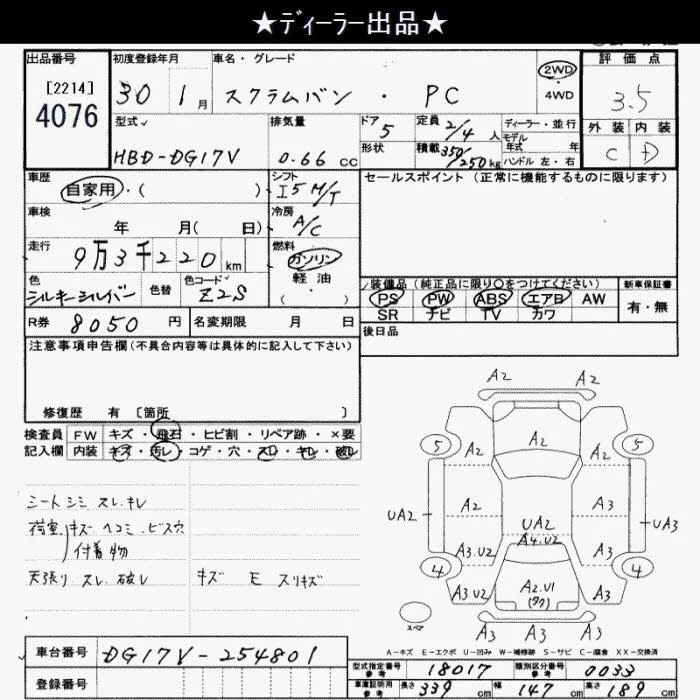 ★ディーラー出品★
出品番号 初度登録年月 車名・グレード 評価点
[2214]
4076
30 1月 スクラムバン・PC
2WD
・
4WD
3.5
型式 排気量 ドア 5 定員 2/4人 ディーラー・並行 外装 内装
モデル年式 年
HBD-DG17V 0.66cc 形状 積載 350/250kg ハンドル 左・右 C D
車歴 シフト セールスポイント(正常に機能するものに限ります)
自家用・( ) I5M/T
車検 冷房
年 月( 日) A/C
走行 燃料
9万3千220km ガソリン
・
軽油
・
( )
色 色替 色コード
シルキーシルバー Z2S
装備品(純正品に限り○をつけてください) 新車保証書
PS PW ABS エアB AW 有・無
SR ナビ TV カワ
R券 8050円 名変期限 月 日 後日品
注意事項申告欄(不具合内容等は具体的に記入して下さい)
修復歴 有〔箇所 〕
検査員 FW キズ・飛石・ヒビ割・リペア跡・×要
記入欄 内装 キズ・汚レ・コゲ・穴・スレ・キレ・破レ
シートシミ スレ.キレ
荷室 キズ ヘコミ.ビス穴
付着物
天張り スレ 破レ キズ E スリキズ
A2 A2
5 A2 A2 5
A2 A3
UA2 UA2 UA3
A4.U2
A3.U2 A3
4 4
A3.U2 A2.U1 A3
スペア
A3 A3 A3
A-キズ E-エクボ U-凹み W-補修跡 S-サビ C-腐食 XX-交換済
車台番号 DG17V-254801
登録番号
型式指定番号 参考 18017 類別区分番号 参考 0033
車庫証明用 参考 長さ 339cm 幅 147cm 高さ 189cm